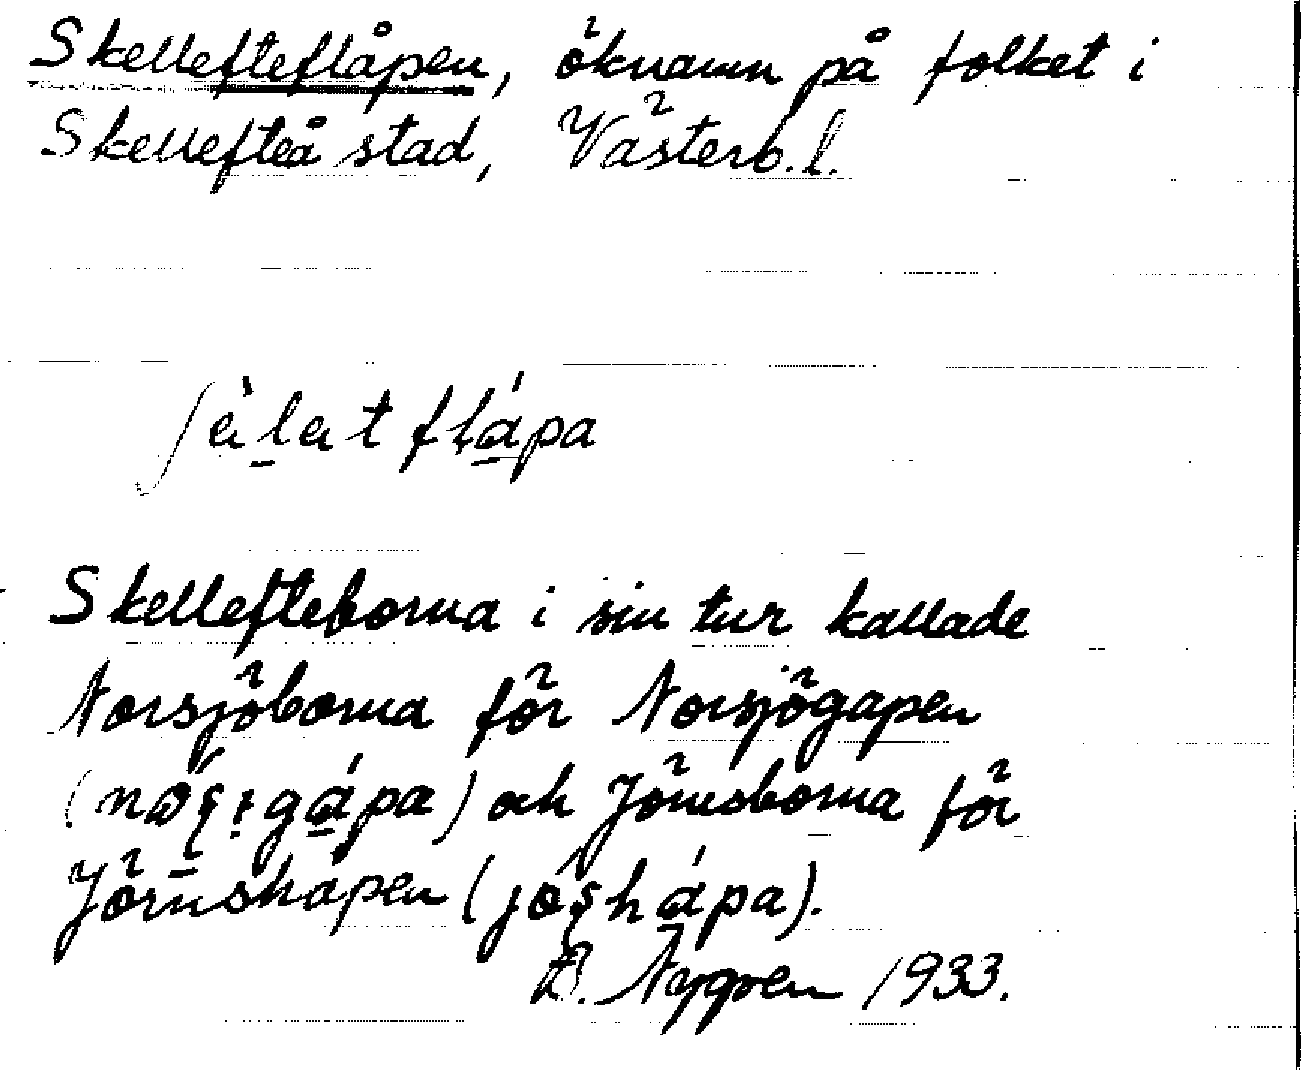 Skellefteflåpen, öknamn på folket i
Skellefteå stad, Västerb. l.
Skellefteborna i sin tur kallade
Norsjöborna för Norsjögapen
och Jörnsborna för
Jörnshåpen
Nygren 1933.